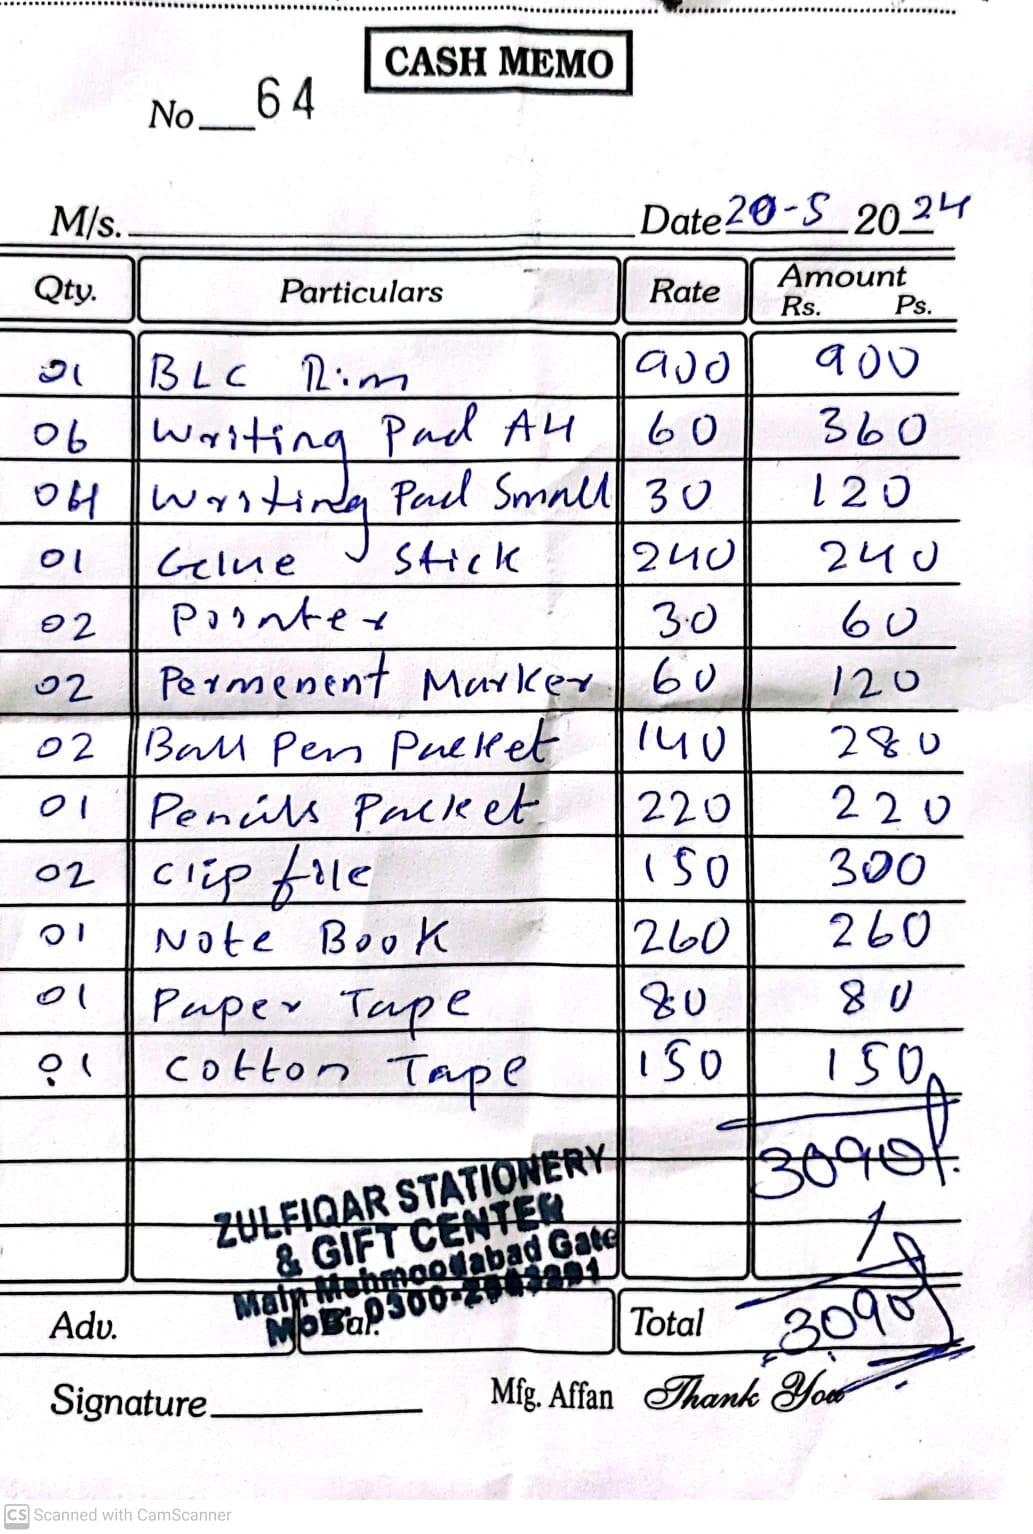 CASH MEMO
No 64
M/s. Date 20-5 2024
Qty. Particulars Rate Amount Rs. Ps.
01 BLC Rim 900 900
06 Writing Pad A4 60 360
04 Writing Pad Small 30 120
01 Gelue Stick 240 240
02 Pointer 30 60
02 Permenent Marker 60 120
02 Ball Pen Packet 140 280
01 Pencils Packet 220 220
02 Clip file 150 300
01 Note Book 260 260
01 Paper Tape 80 80
01 Cotton Tape 150 150
3090/.
ZULFIQAR STATIONERY
& GIFT CENTER
Main Mehmoodabad Gate
Adv. Bal. Total 3090/
Signature Mfg. Affan Thank You
CS Scanned with CamScanner